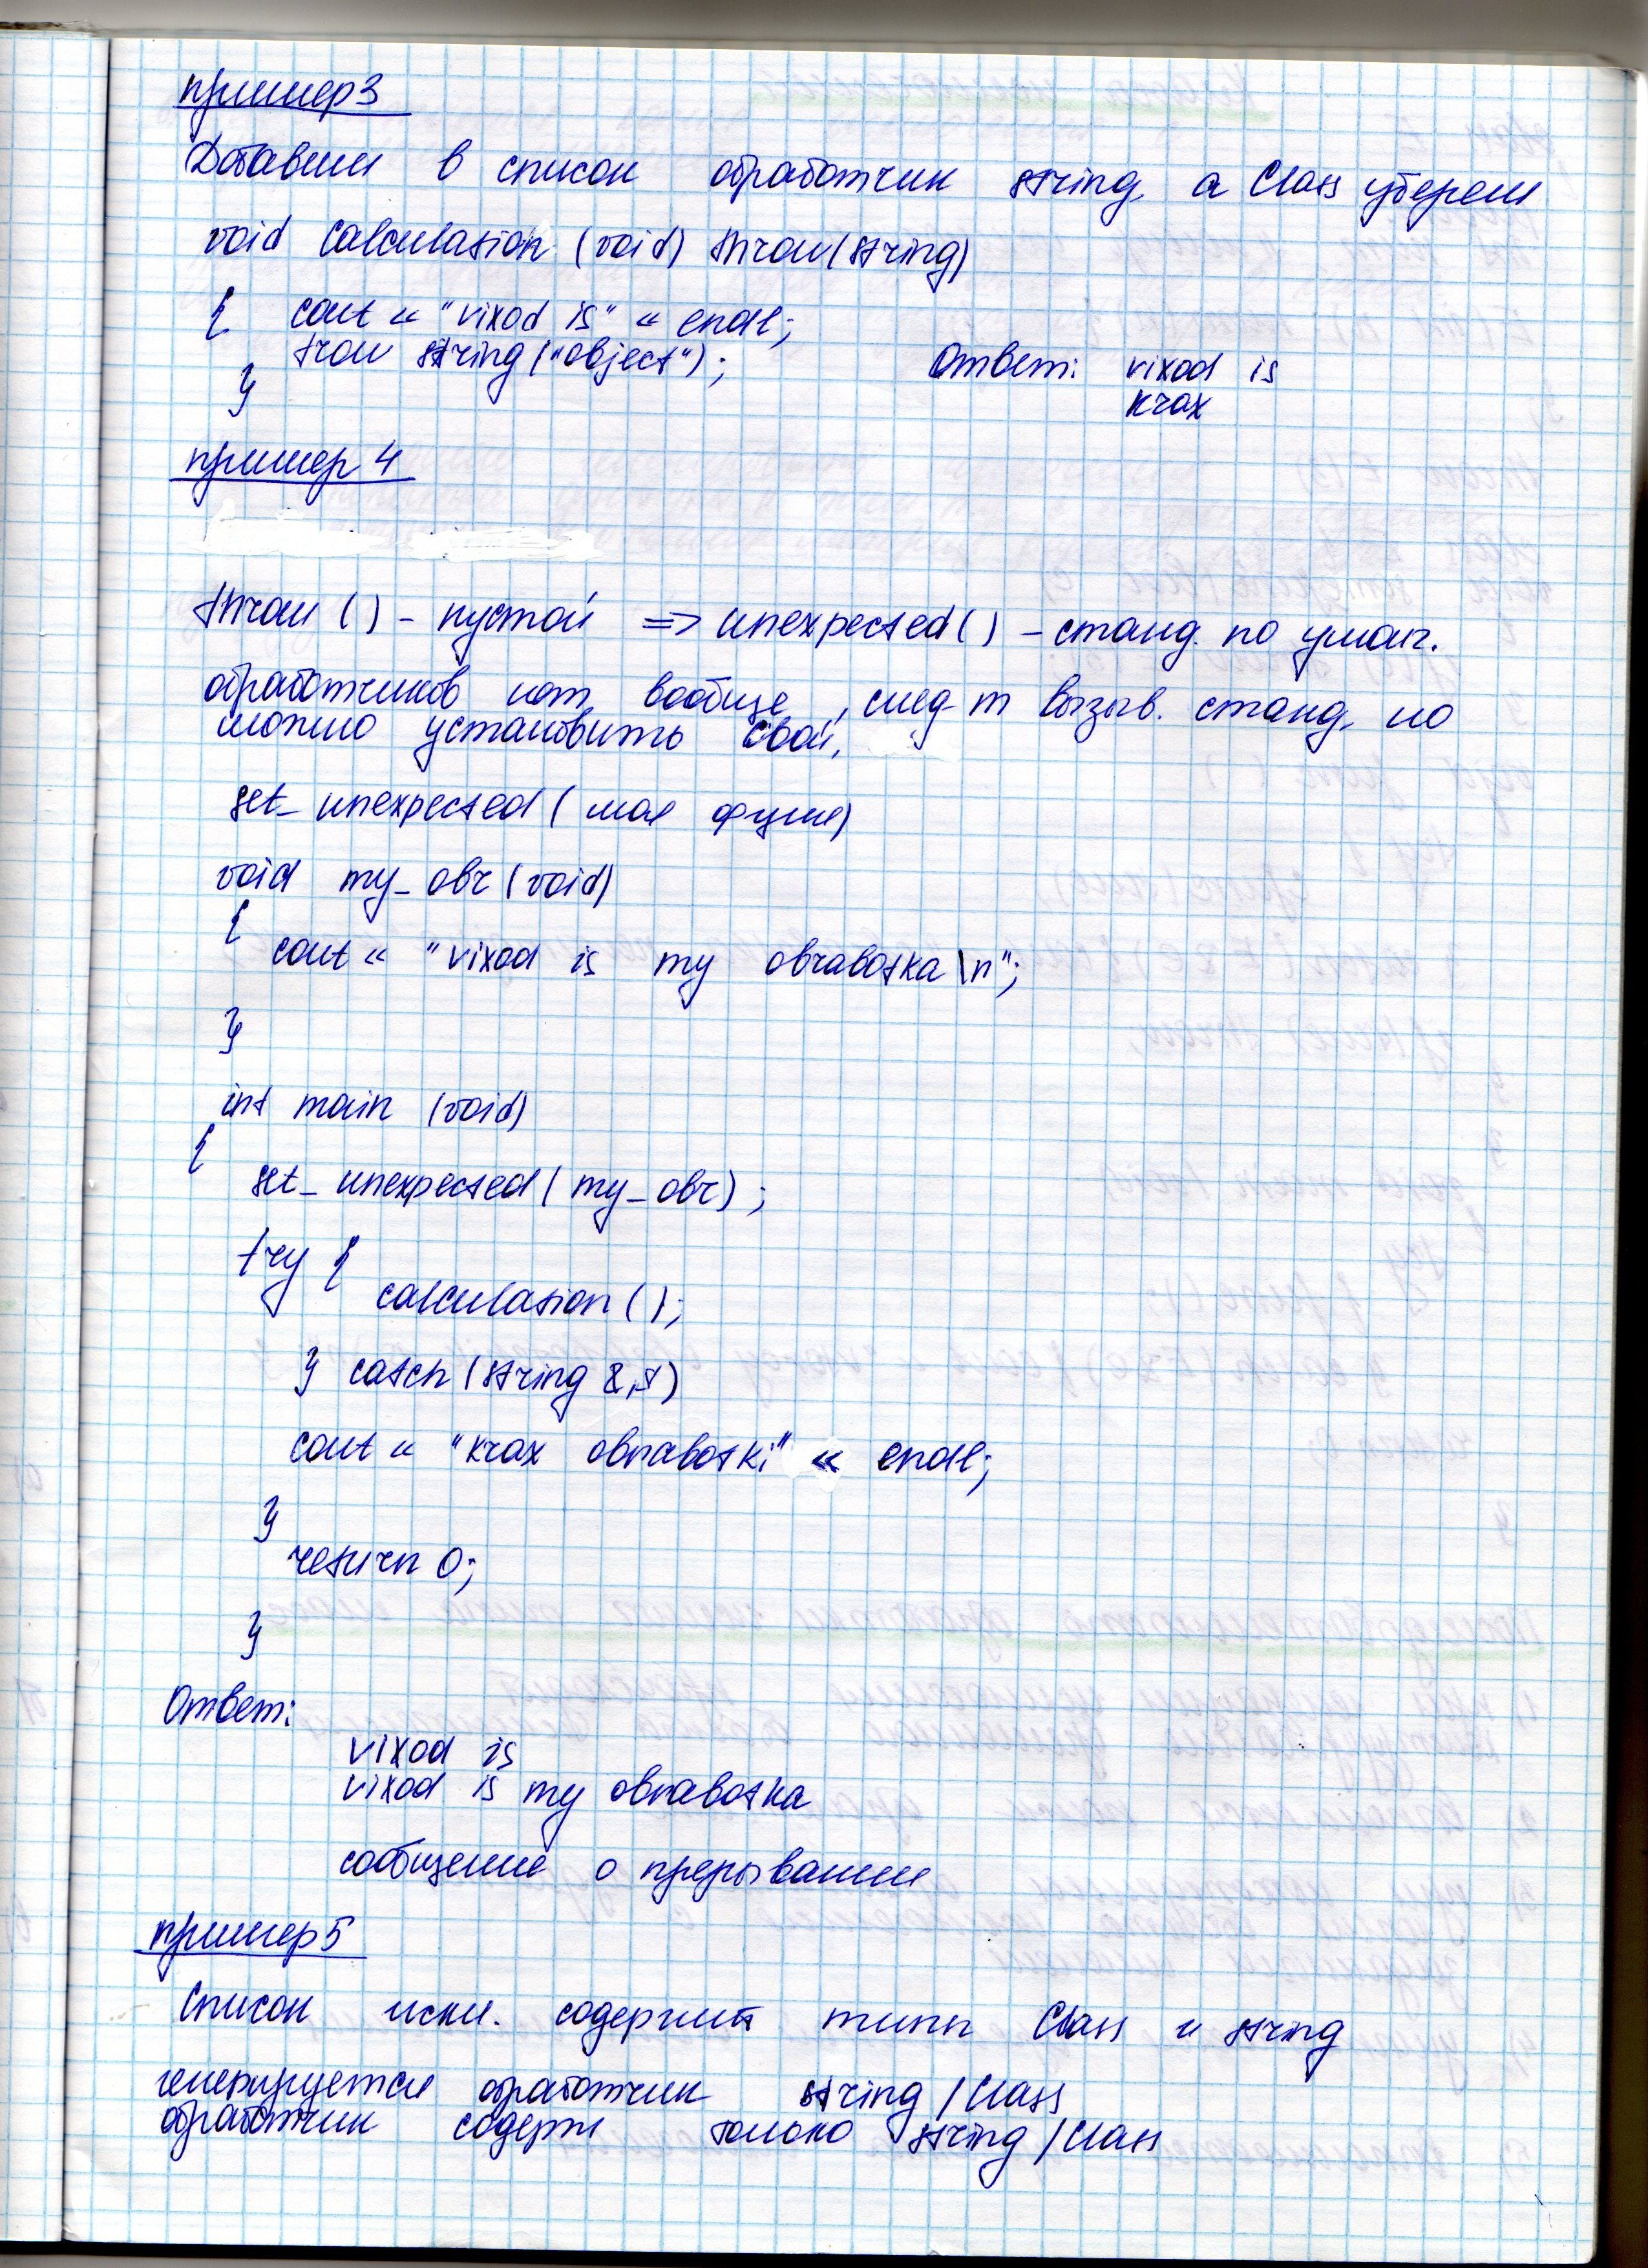 пример 3
Добавим в список обработчик string, а Class уберем
void calculation (void) throw(string)
{ cout << "vixod is" << endl;
trow string("object");
}
Ответ: vixod is
krax
пример 4
throw () - пустой => unexpected() - станд. по умолч.
обработчиков нет вообще, след-т вызыв. станд, но
можно установить свой,
set_unexpected( моя функ)
void my_obr(void)
{
cout << "vixod is my obrabotka \n";
}
int main (void)
{
set_unexpected( my_obr);
try {
calculation ();
} catch (string &,s)
cout << "krax obrabotki" << endl;
}
return 0;
}
Ответ:
vixod is
vixod is my obrabotka
сообщение о прерывании
пример 5
Список искл. содержит типы Class и string
генерируется обработчик string / Class
обработчик содерж только string / Class